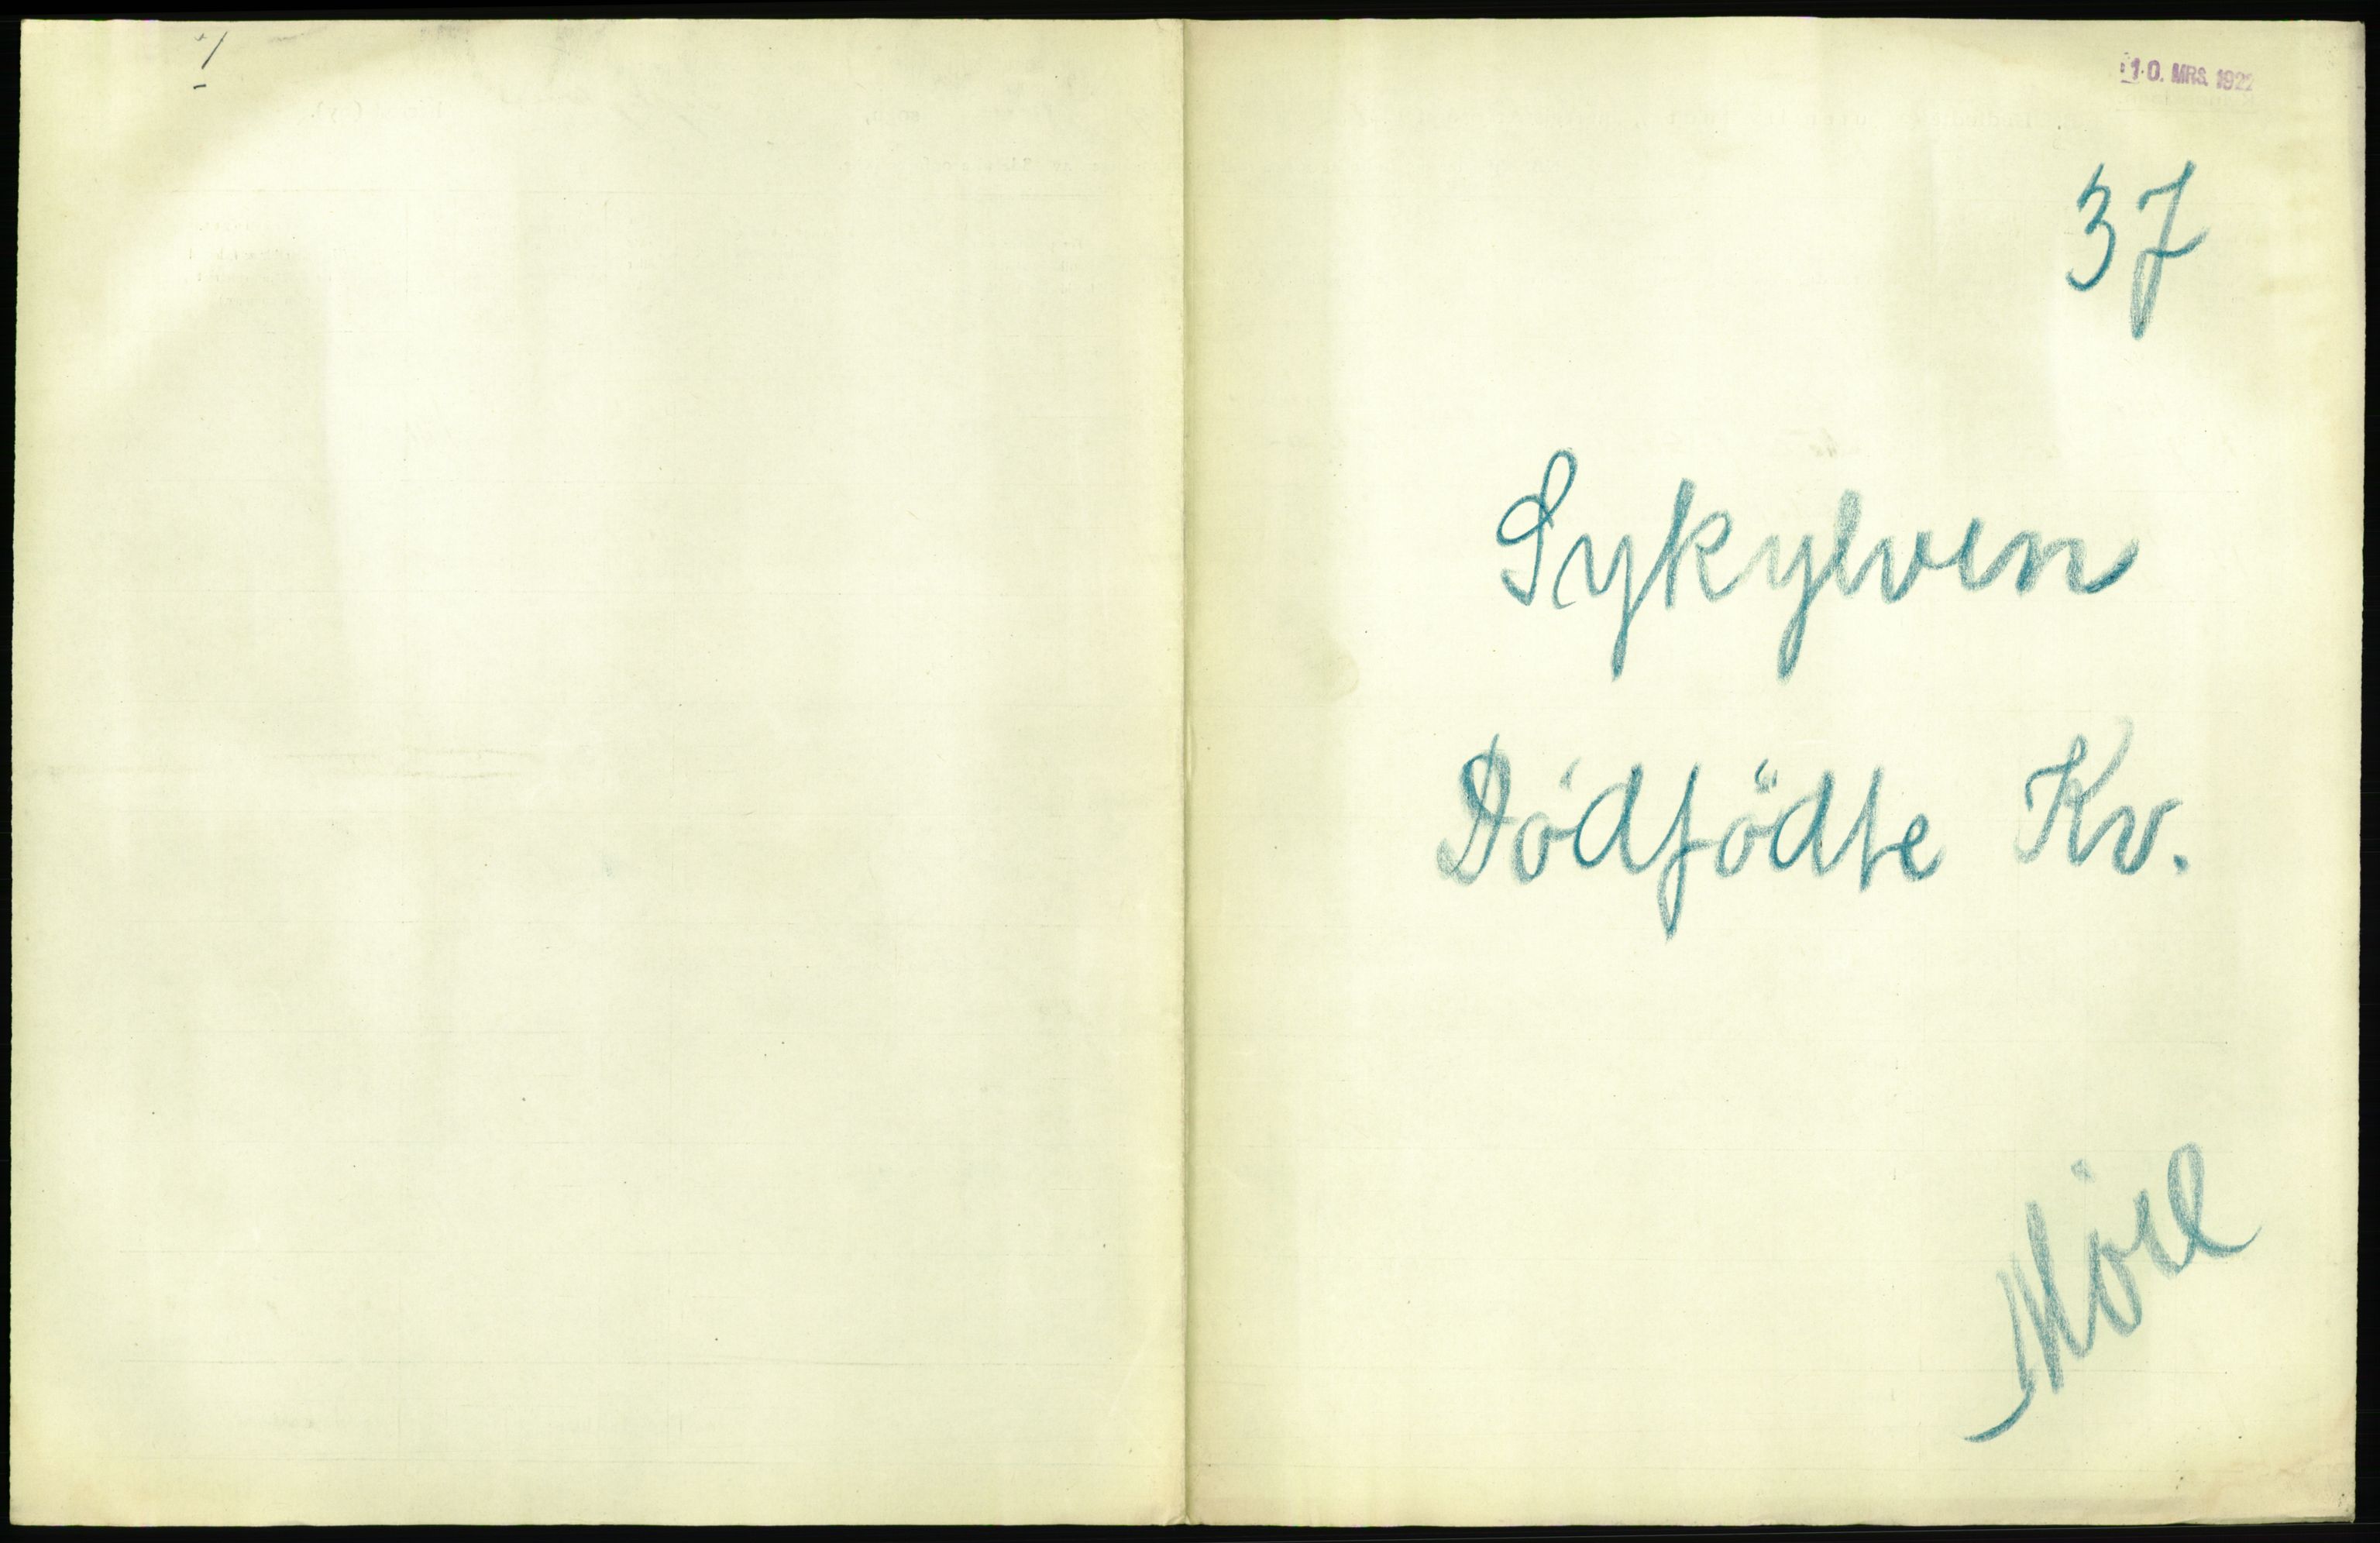 10. MRS. 1922
37
Sykylven
Dödfödte Kv.
Möre